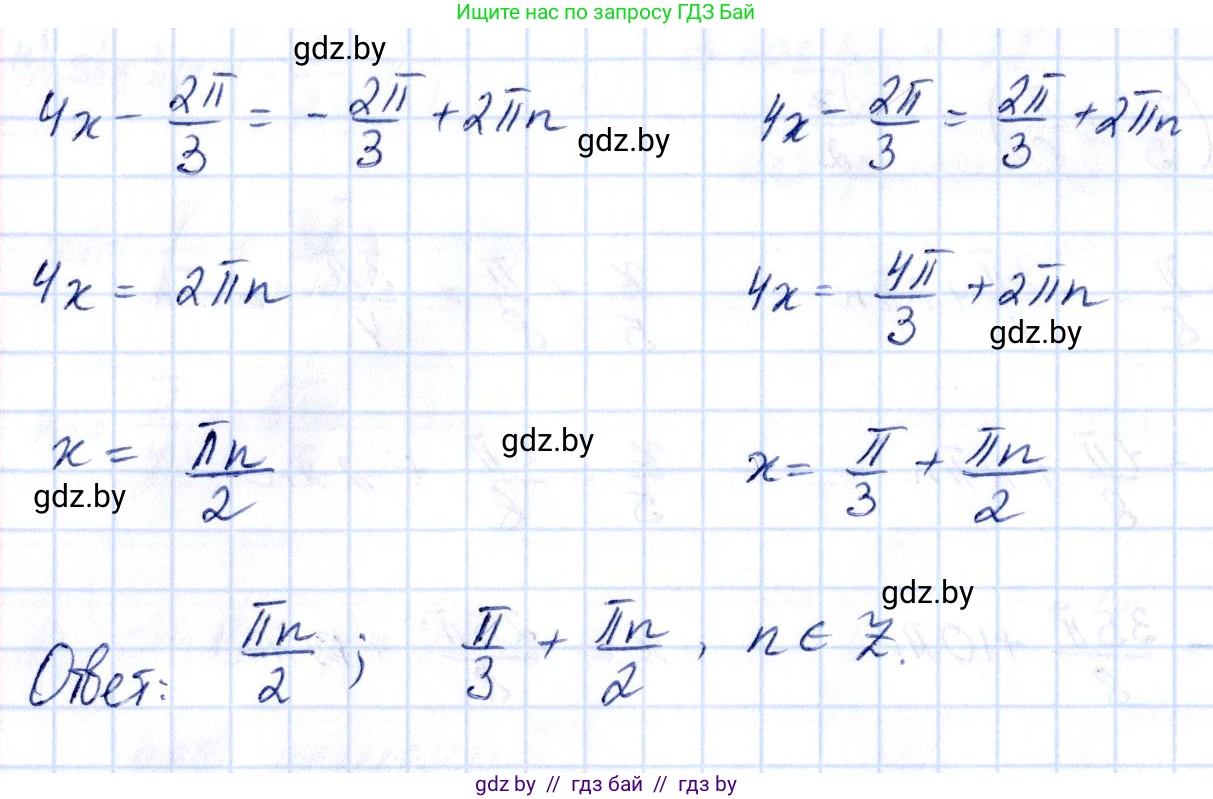 Ищите нас по запросу ГДЗ Бай
gdz.by
4x - 2π/3 = - 2π/3 + 2πn
gdz.by
4x - 2π/3 = 2π/3 + 2πn
4x = 2πn
4x = 4π/3 + 2πn
gdz.by
x = πn/2
gdz.by
gdz.by
x = π/3 + πn/2
gdz.by
Ответ: πn/2 ; π/3 + πn/2 , n ∈ Z.
gdz.by // гдз бай // гдз by